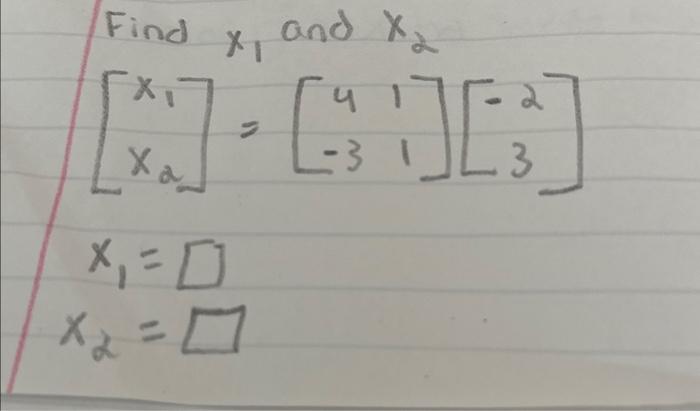 Find x₁ and x₂
[x₁ x₂] = [4 1 -3 1] [-2 3]
x₁ = □
x₂ = □